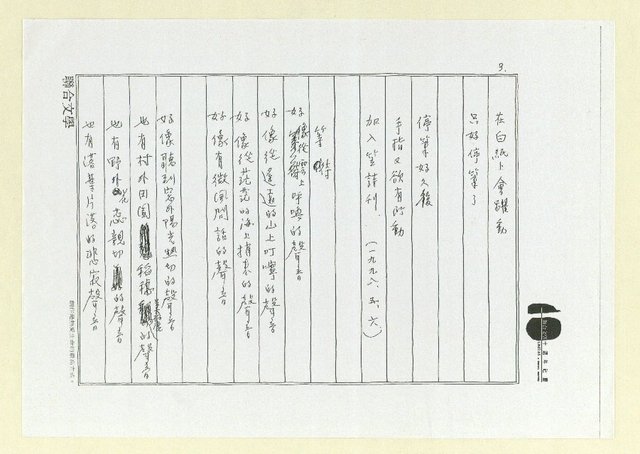 3.
在白紙上會躍動
只好停筆了
停筆好久後
手指又欲有所動
加入笠詩刊.
(一九九八、五、六)
等
好像從雲上呼喚的聲音
好像從遙遠的山上叮嚀的聲音
好像從茫茫的海上捎來的聲音
好像有微風問話的聲音
好像聽到窗外陽光熱切的聲音
也有村外田園稻穗的聲音
也有野外花蕊親切的聲音
也有落葉片落的悲寂聲音
聯合文學